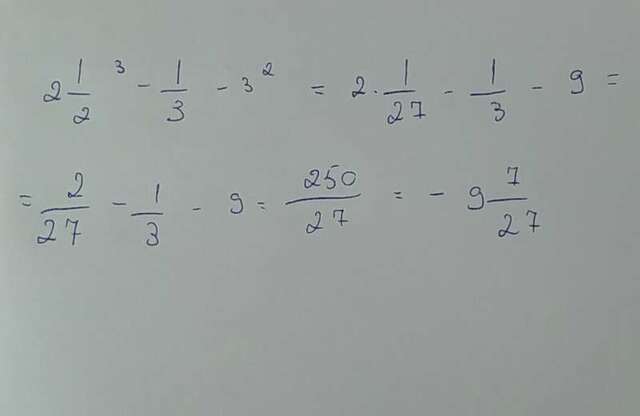 2 1/2 ³ - 1/3 - 3² = 2 · 1/27 - 1/3 - 9 =
= 2/27 - 1/3 - 9 = 250/27 = - 9 7/27